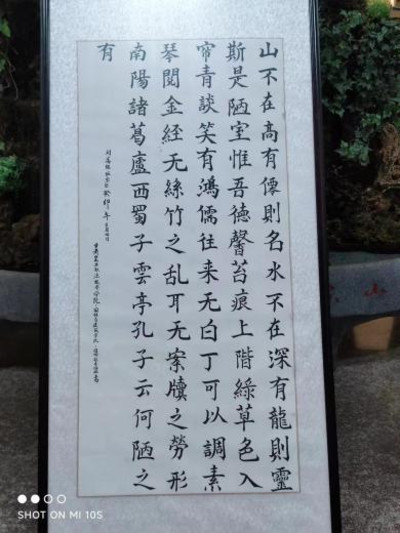 山不在高有僊則名水不在深有龍則靈
斯是陋室惟吾德馨苔痕上階綠草色入
帘青談笑有鴻儒往来无白丁可以調素
琴閱金經无絲竹之乱耳无案牘之勞形
南陽諸葛廬西蜀子雲亭孔子云何陋之
有
癸卯年
SHOT ON MI 10S